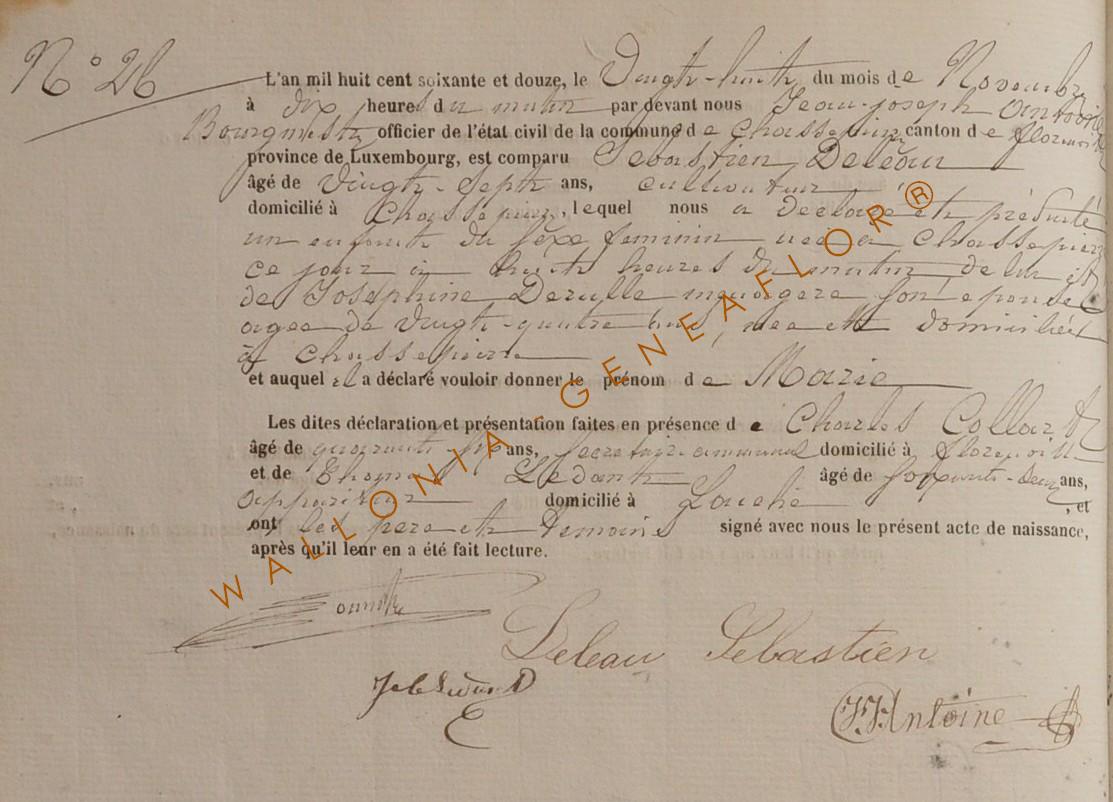 N° 26
L'an mil huit cent soixante et douze, le Vingt-huit du mois de Novembre
à dix heures du matin par devant nous Jean-joseph Antoine
Bourgmestre officier de l'état civil de la commune de Chassepierre canton de florenville
province de Luxembourg, est comparu Sebastien Deleau
âgé de Vingt-Septe ans, cultivateur
domicilié à Chassepierre, lequel nous a declaré et présenté
un enfant du sexe feminin née à Chassepierre
ce jour à huit heures du matin de lui et
de Joséphine Derulle menagere son epouse
agee de Vingt-quatre ans, nee et domiciliée
à Chassepierre
et auquel il a déclaré vouloir donner le prénom de Marie
Les dites déclaration et présentation faites en présence de Charles Collard
âgé de quarante ans, Secretaire communal domicilié à florenville
et de Ledant âgé de soixante-deux ans,
appariteur domicilié à , et
ont les pere et temoins signé avec nous le présent acte de naissance,
après qu'il leur en a été fait lecture.
Deleau Sebastien
JJAntoine
WALLONIA-GENEAFLOR®